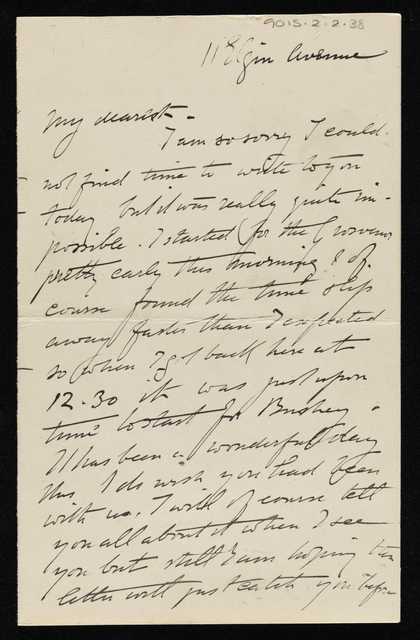 9015-2-2-38
11 Elgin Avenue
My dearest -
I am so sorry I could
not find time to write to you
today but it was really quite im-
possible. I started for the Grosvenor
pretty early this morning & of
course found the time slip
away faster than I expected
so when I got back here at
12.30 it was just upon
time to start for Bushey.
It has been a wonderful day
this. I do wish you had been
with us. I will of course tell
you all about it when I see
you but still I am hoping this
letter will just catch you before